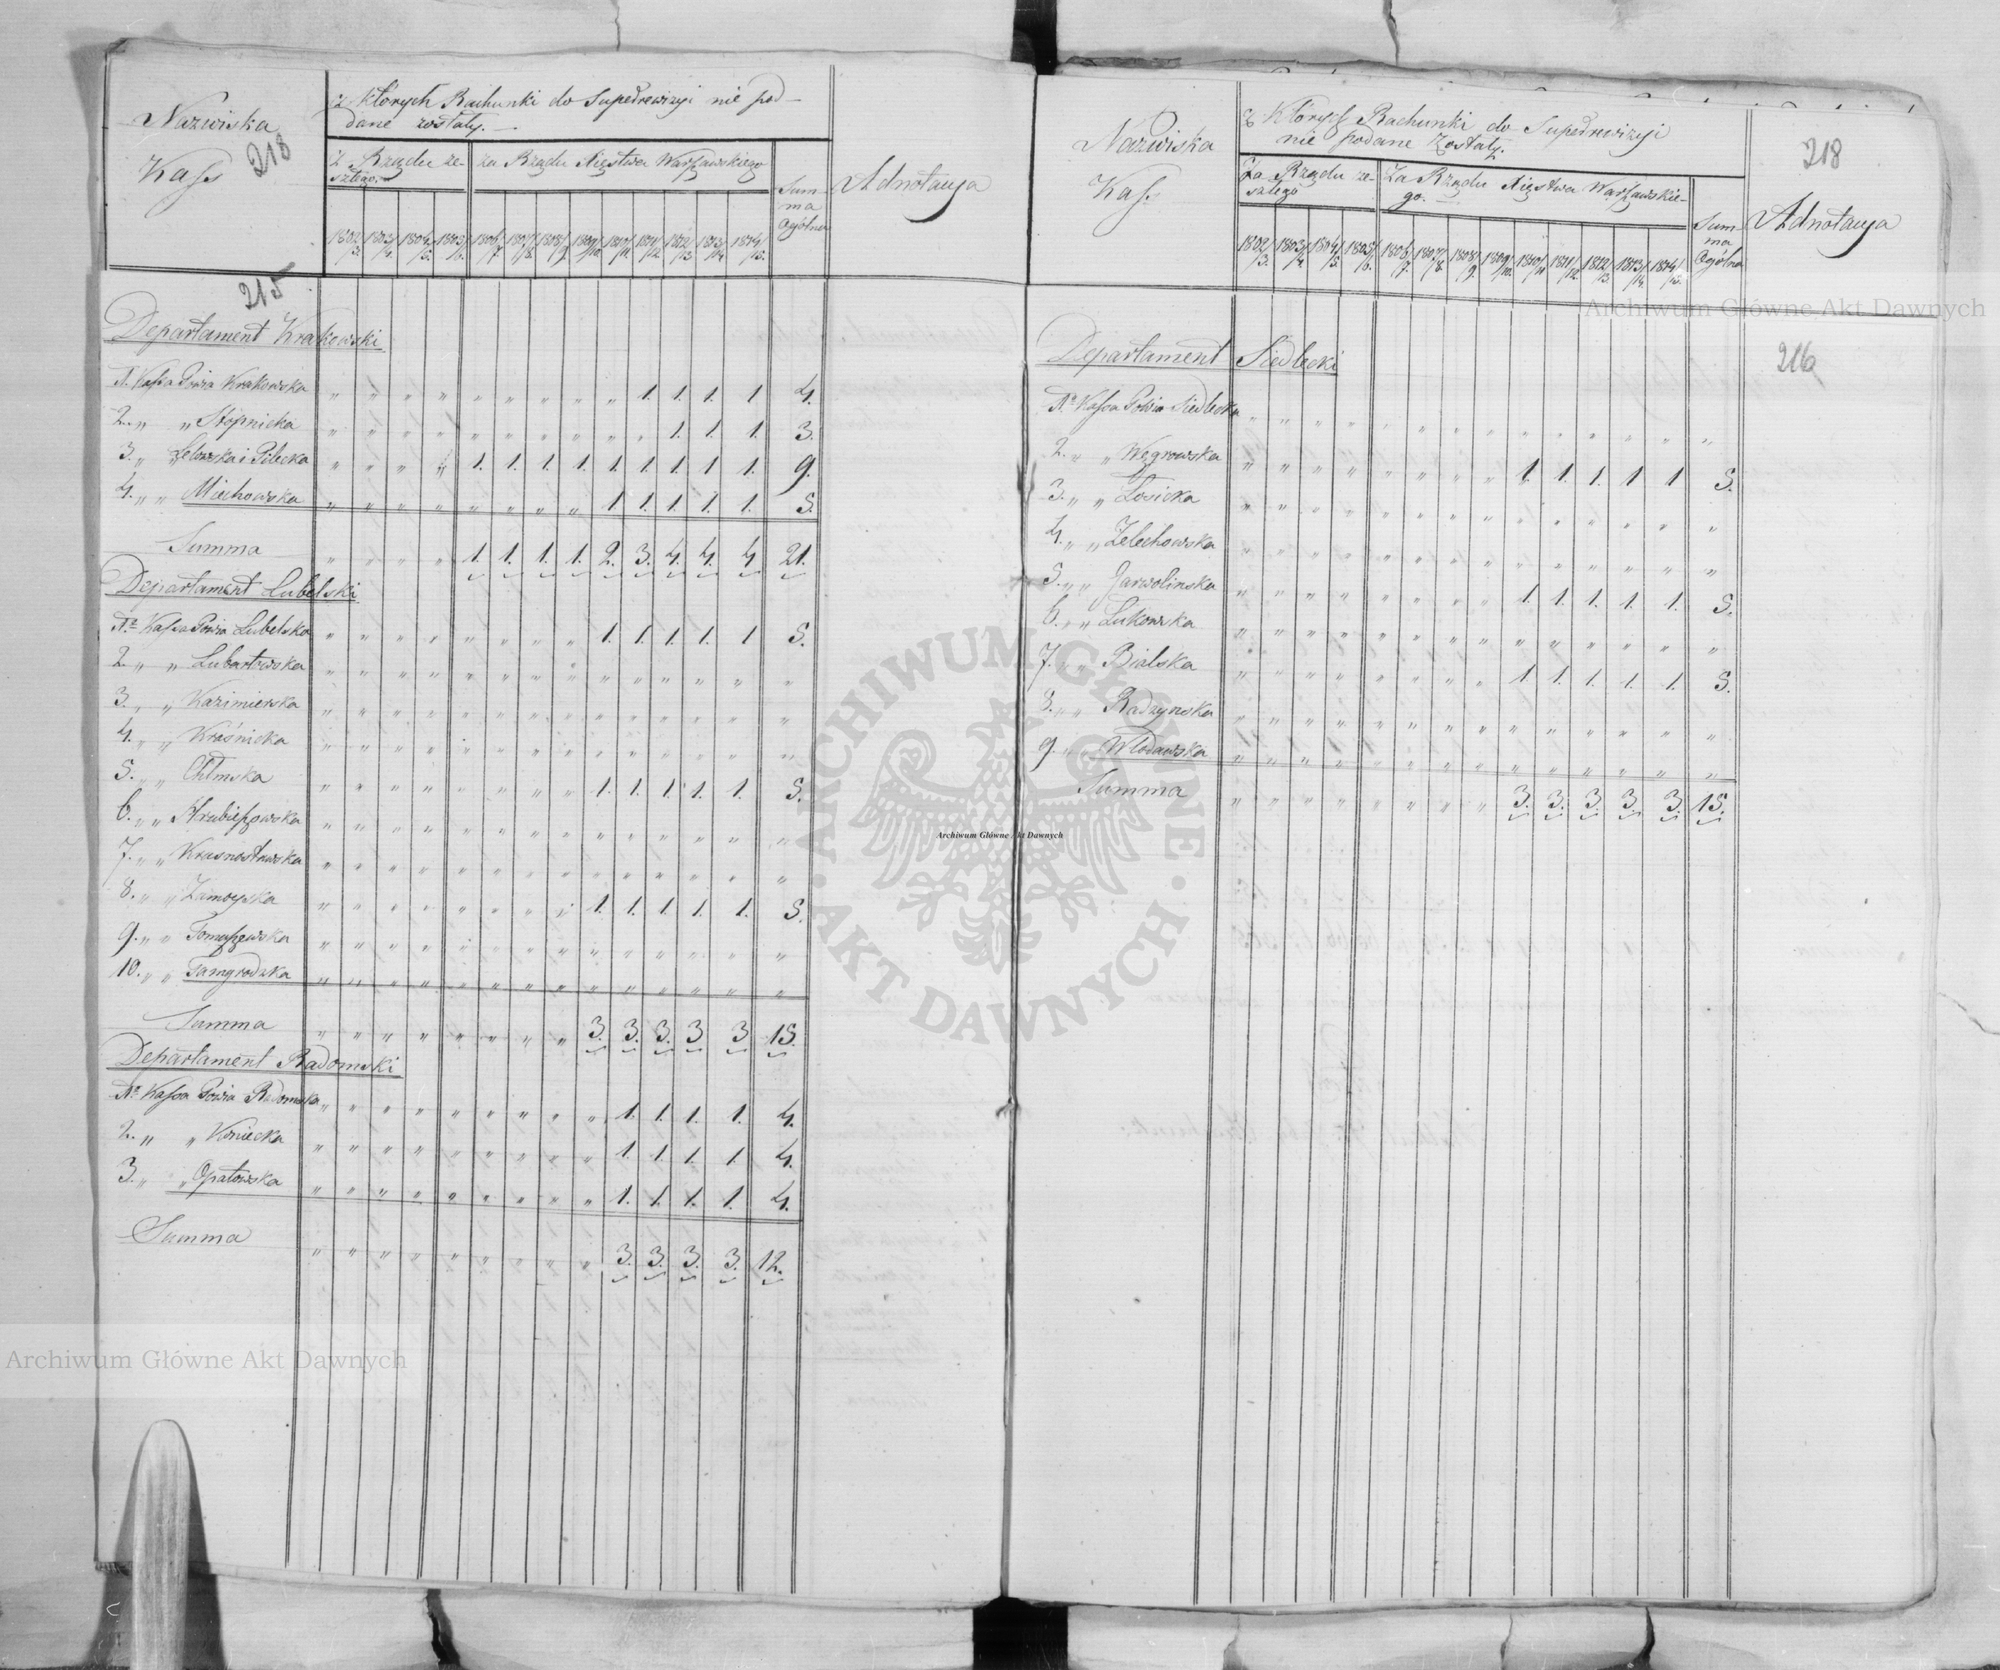 Nazwiska
Kass
218
z których Rachunki do Superrewizyi nie po-
dane zostały.
Z Rządu ze-
szłego.
za Rządu Xięstwa Warszawskiego
Sum-
ma
Ogólna
Adnotacya
1802/3. 1803/4. 1804/5. 1805/6. 1806/7. 1807/8. 1808/9. 1809/10. 1810/11. 1811/12. 1812/13. 1813/14. 1814/15.
215
Departament Krakowski
1. Kassa Powia Krakowska " " " " " " " " " 1. 1. 1. 1 4.
2. " " Stopnicka " " " " " " " " " " 1. 1. 1. 3.
3. " Lelowska i Pilecka " " " " 1. 1. 1. 1. 1. 1. 1. 1. 1. 9.
4. " " Miechowska " " " " " " " " 1. 1. 1. 1. 1. 5.
Summa " " " " 1. 1. 1. 1. 2. 3. 4. 4. 4 21.
Departament Lubelski
1o Kassa Powia Lubelska " " " " " " " " 1. 1. 1. 1. 1 5.
2. " " Lubartowska " " " " " " " " " " " " " "
3. " " Kazimierska " " " " " " " " " " " " " "
4. " " Kraśnicka " " " " " " " " " " " " " "
5. " " Chełmska " " " " " " " " 1. 1. 1. 1. 1. 5.
6. " " Hrubieszowska " " " " " " " " " " " " " "
7. " " Krasnostawska " " " " " " " " " " " " " "
8. " " Zamoyska " " " " " " " " 1. 1. 1. 1. 1. 5.
9. " " Tomaszewska " " " " " " " " " " " " " "
10. " " Tarnogrodzka " " " " " " " " " " " " " "
Summa " " " " " " " " 3. 3. 3. 3 3 15.
Departament Radomski
1o Kassa Powia Radomska " " " " " " " " " 1. 1. 1. 1. 4.
2. " " Koniecka " " " " " " " " " 1. 1. 1. 1 4.
3. " " Opatowska " " " " " " " " " 1. 1. 1. 1. 4.
Summa " " " " " " " " " 3. 3. 3. 3. 12.
Nazwiska
Kass.
z Których Rachunki do Superrewizyi
nie podane zostały.
Za Rządu ze-
szłego
Za Rządu Xięstwa Warszawskie-
go.
Sum-
ma
Ogólna
218
Adnotacya
1802/3. 1803/4. 1804/5. 1805/6. 1806/7. 1807/8. 1808/9. 1809/10. 1810/11 1811/12. 1812/13. 1813/14. 1814/15.
216
Departament Siedlecki
1o Kassa Powia Siedlecka " " " " " " " " " " " " " "
2. " " Węgrowska " " " " " " " " 1. 1. 1. 1 1 5.
3. " " Łosicka " " " " " " " " " " " " " "
4. " " Żelechowska " " " " " " " " " " " " " "
5. " " Garwolinska " " " " " " " " 1. 1. 1. 1. 1. 5.
6. " " Łukowska " " " " " " " " " " " " " "
7. " " Bialska " " " " " " " " 1. 1. 1. 1. 1. 5.
8. " " Radzynska " " " " " " " " " " " " " "
9. " " Włodawska " " " " " " " " " " " " " "
Summa " " " " " " " " 3. 3. 3. 3. 3. 15.
Archiwum Główne Akt Dawnych
ARCHIWUM GŁÓWNE AKT DAWNYCH
Archiwum Główne Akt Dawnych
Archiwum Główne Akt Dawnych